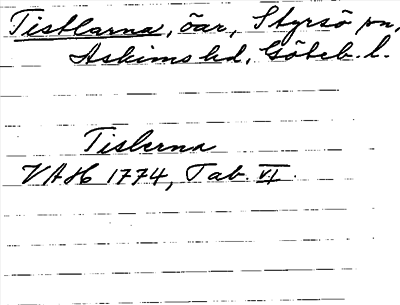 Tistlarna, öar, Styrsö sn,
Askims hd, Göteb. l.
Tislerna
VAH 1774, Tab. VI.